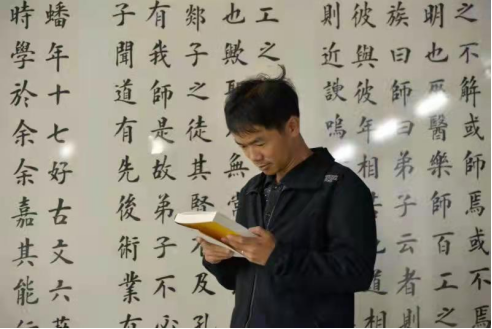 之不解或師焉或不焉
明也巫醫樂師百工之
族曰師曰弟子云者則
彼與彼年相
則近諛嗚
工之
也歟
無
郯子之徒其賢不及孔
有我師是故弟子不必
子聞道有先後術業有
蟠年十七好古文六藝
時學於余余嘉其能行